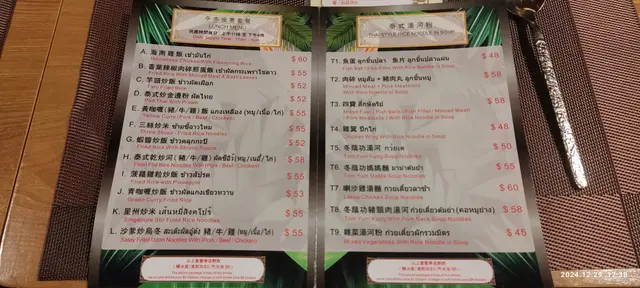 午市優惠套餐
LUNCH MENU
A. 海南雞飯 เข้ามันไก่
$ 60
Hainanese Chicken With Flavoring Rice
B. 香葉辣椒肉碎煎蛋飯 เข้าผัดกระเพราไข่ดาว
$ 55
Fried Rice With Minced Meat & Basil Leaves
C. 芋頭炒飯 ข้าวผัดเผือก
$ 52
Taro Fried Rice
D. 泰式炒金邊粉 ผัดไทย
$ 52
Pad Thai With Prawn
E. 黃咖喱(豬/牛/雞)飯 แกงเหลือง (หมู/เนื้อ/ไก่)
$ 55
Yellow Curry (Pork/Beef/Chicken)
F. 三絲炒米
$ 55
Three Slices Fried Rice Noodles
G. 蝦醬炒飯 ข้าวคลุกกะปิ
$ 52
Fried Rice With Shrimp Paste
H. 泰式乾炒河(豬/牛/雞) ผัดซีอิ๊ว(หมู/เนื้อ/ไก่)
$ 58
Fried Flat Rice Noodles With (Pork / Beef / Chicken)
I. 菠蘿雞粒炒飯 ข้าวผัดสัปรด
$ 55
Fried Rice with Pineapple
J. 青咖喱炒飯 ข้าวผัดแกงเขียวหวาน
$ 53
Green Curry Fried Rice
K. 星州炒米 เส้นหมี่สิงคโปร์
$ 55
Singapore Stir Fried Rice Noodles
L. 沙爹炒烏冬 สะเต๊ะผัดอู้ด้ง 豬/牛/雞 (หมู/เนื้อ/ไก่)
$ 55
Satay Fried Udon Noodles With (Pork / Beef / Chicken)
以上套餐奉送熱飲
泰式湯河粉
THAI STYLE RICE NOODLE IN SOUP
T1. 魚蛋 ลูกชิ้นปลา 魚片 ลูกชิ้นปลาแผ่น
$ 48
Fish Ball / Fish Fillet With Rice Noodle in Soup
T2. 肉碎 หมูสับ + 豬肉丸 ลูกชิ้นหมู
$ 58
Minced Meat / Pork Meatballs
With Rice Noodle in Soup
T3. 四寶 สี่กษัตริย์
$ 58
Mixed Four / Fish Balls / Fish Fillet / Minced Meat
/ Pork Meatballs / With Rice Noodle in Soup
T4. 雞翼 ปีกไก่
$ 48
Chicken Wing With Rice Noodle in Soup
T5. 冬蔭功湯河 ก๋วยเตี๋ยว
$ 50
Tom Yum Kung Soup Noodles
T6. 冬蔭功媽媽麵 มาม่าต้มยำ
$ 55
Tom Yum MaMa Soup Noodles
T7. 喇沙雞湯麵 ก๋วยเตี๋ยวลาซ้า
$ 60
Laksa Chicken Soup Noodles
T8. 冬蔭功豬頸肉湯河粉 ก๋วยเตี๋ยวต้มยำ (คอหมูย่าง)
$ 58
Tom Yum Kung With Pork Neck Soup Noodles
T9. 雜菜湯河粉 ก๋วยเตี๋ยวผักรวมมิตร
$ 45
Mixed Vegetables With Rice Noodle in Soup
以上套餐奉送熱飲
2024.12.29 12:38